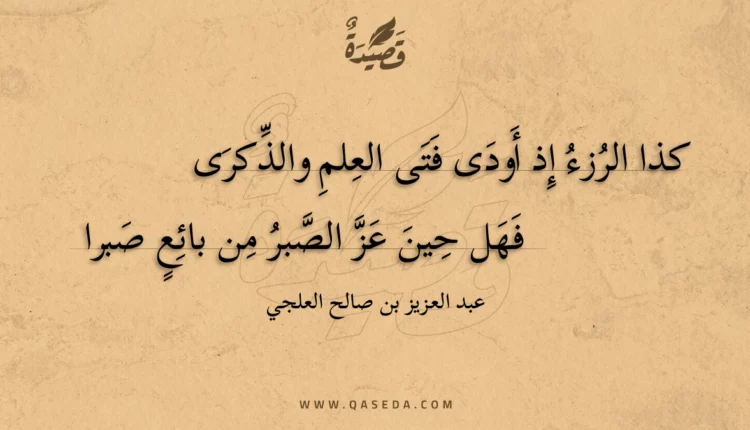 قَصِيدَةٌ
كذا الرُزءُ إِذ أَودَى فَتَى العِلمِ والذِّكرَى
فَهَل حِينَ عَزَّ الصَّبرُ مِن بائِعٍ صَبرا
عبد العزيز بن صالح العلجي
WWW.QASEDA.COM